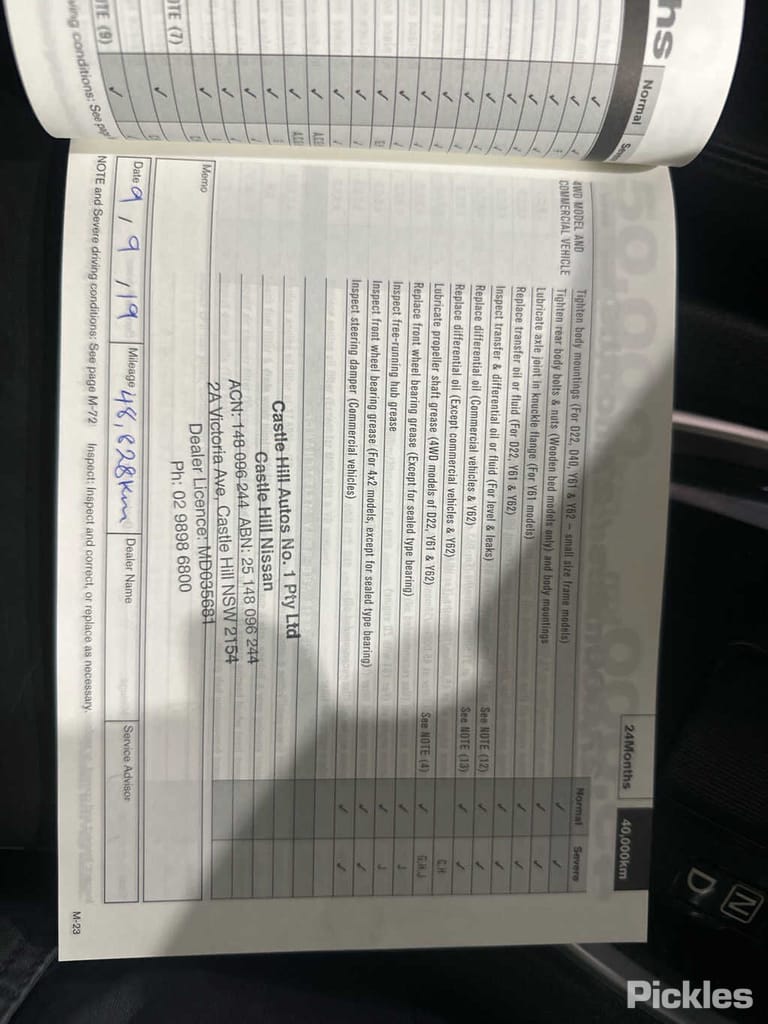 24Months 40,000km
Normal Severe
4WD MODEL AND
COMMERCIAL VEHICLE
Tighten body mountings (For D22, D40, Y61 & Y62 – small size frame models) ✓ ✓
Tighten rear body bolts & nuts (Wooden bed models only) and body mountings
Lubricate axle joint in knuckle flange (For Y61 models)
Replace transfer oil or fluid (For D22, Y61 & Y62)
Inspect transfer & differential oil or fluid (For level & leaks)
Replace differential oil (Commercial vehicles & Y62) See NOTE (12)
Replace differential oil (Except commercial vehicles & Y62) See NOTE (13)
Lubricate propeller shaft grease (4WD models of D22, Y61 & Y62) G.H
Replace front wheel bearing grease (Except for sealed type bearing) See NOTE (4) G.H.J
Inspect free-running hub grease J
Inspect front wheel bearing grease (For 4x2 models, except for sealed type bearing) J
Inspect steering damper (Commercial vehicles)
Castle Hill Autos No. 1 Pty Ltd
Castle Hill Nissan
ACN: 148 096 244 ABN: 25 148 096 244
2A Victoria Ave, Castle Hill NSW 2154
Dealer Licence: MD035681
Ph: 02 9898 6800
Memo
Date 9 , 9 , 19 Mileage 48,828km Dealer Name Service Advisor
NOTE and Severe driving conditions: See page M-72 Inspect: Inspect and correct, or replace as necessary.
M-23
hs
Normal
NOTE (7)
NOTE (9)
ving conditions: See pag
N
D
Pickles